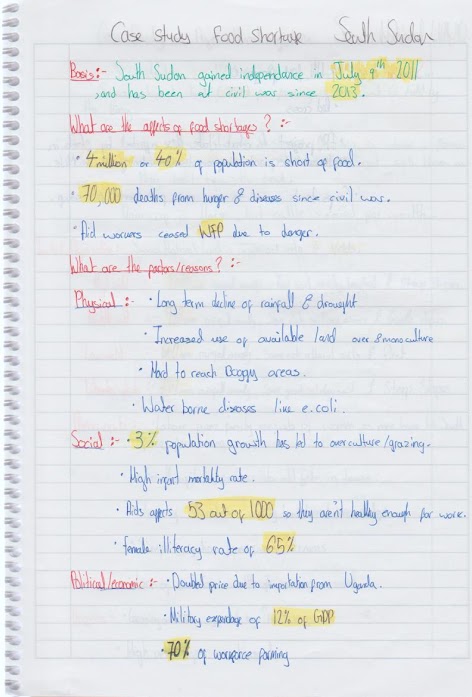 Case study Food Shortage South Sudan
Basis:- South Sudan gained independance in July 9th 2011
, and has been at civil war since 2013.
What are the affects of food shortages? :-
· 4 million or 40% of population is short of food.
· 70,000 deaths from hunger & diseases since civil war.
· Aid workers ceased WFP due to danger.
What are the factors/reasons? :-
Physical :- · Long term decline of rainfall & drought
· Increased use of available land over & monoculture
· Hard to reach Boggy areas.
· Water borne diseases like e.coli.
Social :- · 3% population growth has led to overculture/grazing.
· High infant mortality rate.
· Aids affects 53 out of 1000 so they aren't healthy enough for work.
· female illiteracy rate of 65%
Political/economic :- · Doubled price due to importation from Uganda.
· Military expendage of 12% of GDP
· 70% of workforce farming